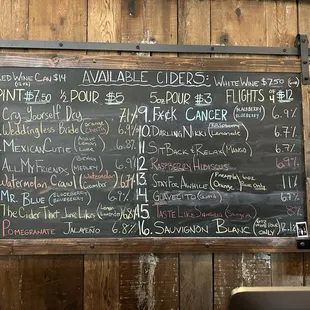 RED WINE CAN $14
AVAILABLE CIDERS:
WHITE WINE $7.50
PINT $7.50 ½ POUR $5
5oz POUR $3 FLIGHTS OF 4 $12
Cry Yourself Day 7.1%
Weddingless Bride (Orange) 6.9%
Mexican Cutie (Lime) 6.8%
All My Friends (Medley) 6.9%
Watermelon Crawl (Watermelon Cucumber) 6.7%
Mr. Blue (Blueberry) 6.9%
The Cider That Jane Likes 6.8%
Pomegranate Jalapeño 6.8%
9. F*ck Cancer (Blackberry Blueberry) 6.9%
10. Darling Nikki (Lemonade) 6.9%
11. Sit Back & Relax 6.9%
12. Raspberry Hibiscus 6.9%
13. Stay Fool Awhile (Pineapple Orange) 11%
14.
15. Taste Like (Sangria) 8%
16. Sauvignon Blanc (only) 12.1%